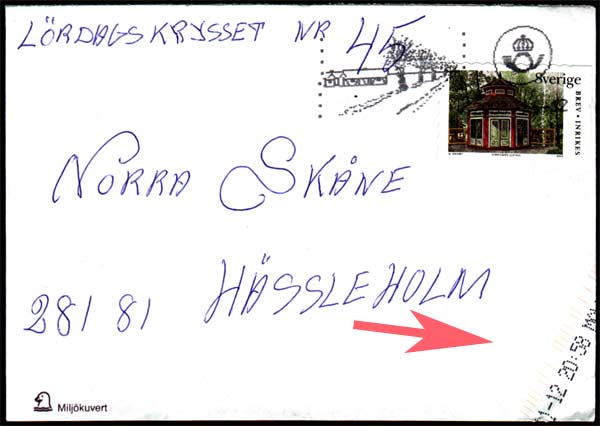 LÖRDAGSKRYSSET NR 45
Sverige
BREV • INRIKES
NORRA SKÅNE
281 81 HÄSSLEHOLM
1-12 20:58
Miljökuvert